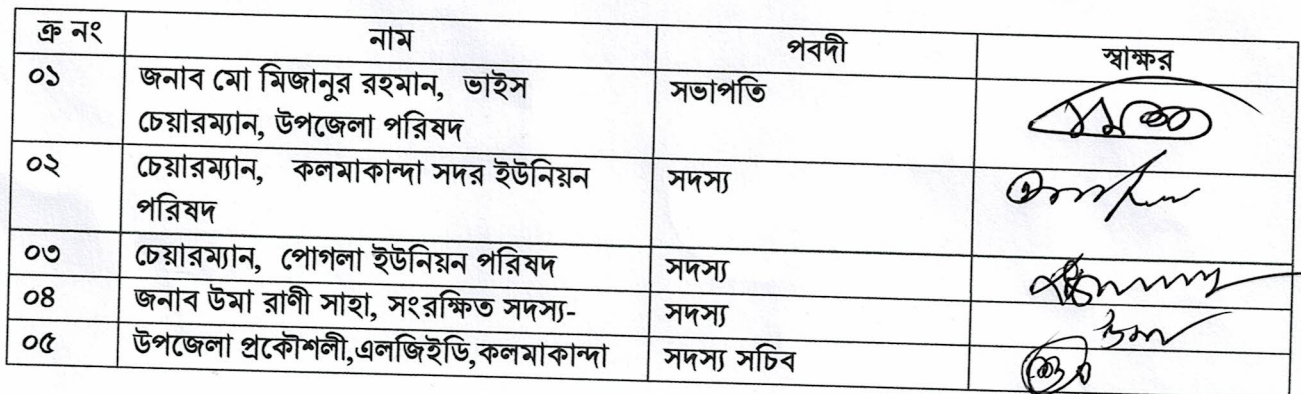 ক্র নং নাম পবদী স্বাক্ষর
০১ জনাব মো মিজানুর রহমান, ভাইস সভাপতি
চেয়ারম্যান, উপজেলা পরিষদ
০২ চেয়ারম্যান, কলমাকান্দা সদর ইউনিয়ন সদস্য
পরিষদ
০৩ চেয়ারম্যান, পোগলা ইউনিয়ন পরিষদ সদস্য
০৪ জনাব উমা রাণী সাহা, সংরক্ষিত সদস্য- সদস্য
০৫ উপজেলা প্রকৌশলী,এলজিইডি,কলমাকান্দা সদস্য সচিব